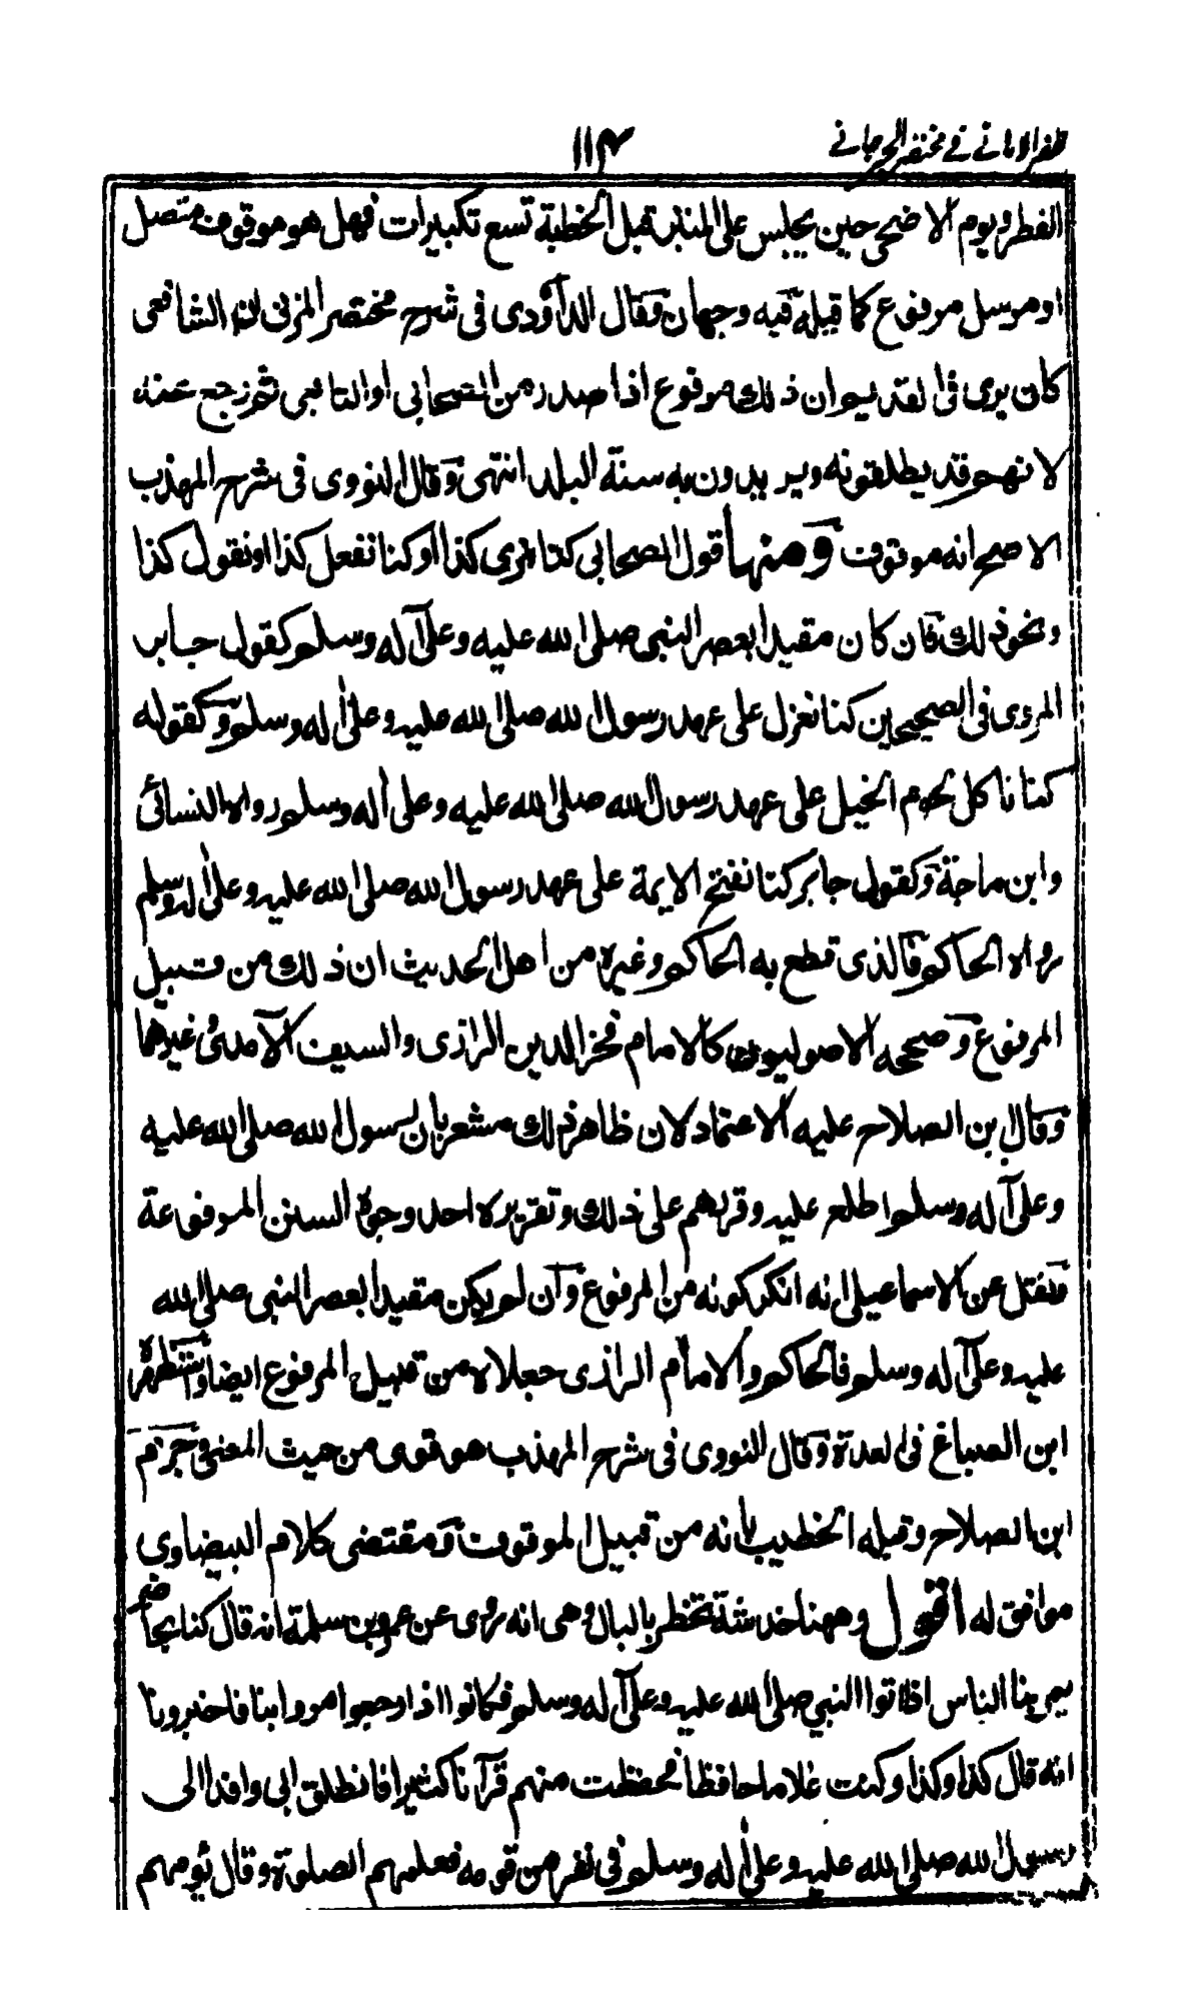 ظفر الامانی فی مختصر الجرجانی
۱۱۴
الفطر ویوم الاضحی حین یجلس علی المنبر قبل الخطبة تسع تکبیرات فهل هو موقوف متصل
او مرسل مرفوع کما قیل فیه وجهان وقال الداؤدی فی شرح مختصر المزنی ان الشافعی
کان یری فی القدیم ان ذلك مرفوع اذا صدر من الصحابی او التابعی ثم رجع عنه
لانهم قد یطلقونه ویریدون به سنة البلد انتهی وقال النووی فی شرح المهذب
الاصح انه موقوف ومنها قول الصحابی کنا نری کذا او کنا نفعل کذا او نقول کذا
ونحو ذلك فان کان مقیدا بعصر النبی صلی الله علیه وعلی آله وسلم کقول جابر
المروی فی الصحیحین کنا نعزل علی عهد رسول الله صلی الله علیه وعلی اٰله وسلم وکقوله
کنا ناکل لحوم الخیل علی عهد رسول الله صلی الله علیه وعلی اٰله وسلم رواه النسائی
وابن ماجة وکقول جابر کنا نفتح الایمة علی عهد رسول الله صلی الله علیه وعلی اٰله وسلم
رواه الحاکم فالذی قطع به الحاکم وغیره من اهل الحدیث ان ذلك من قبیل
المرفوع وصححه الاصولیون کالامام فخر الدین الرازی والسیف الآمدی وغیرهما
وقال بن الصلاح علیه الاعتماد لان ظاهر ذلك مشعر بان رسول الله صلی الله علیه
وعلی آله وسلم اطلع علیه وقررهم علی ذلك وتقریره احد وجوه السنن المرفوعة
ونقل عن الاسماعیلی انه انکر کونه من المرفوع وان لم یکن مقیدا بعصر النبی صلی الله
علیه وعلی آله وسلم فالحاکم والامام الرازی جعلاه من قبیل المرفوع ایضا
ابن الصباغ فی العدة وقال النووی فی شرح المهذب هو قوی من حیث المعنی وجزم
ابن الصلاح وقبله الخطیب بانه من قبیل الموقوف ومقتضی کلام البیضاوی
موافق له اقول وههنا خدشة تخطر بالبال وهی انه روی عن عمرو بن سلمة انه قال کنا بحاضر
یمر بنا الناس اذا اتوا النبی صلی الله علیه وعلی آله وسلم فکانوا اذا رجعوا مروا بنا فاخبرونا
انه قال کذا وکذا وکنت غلاما حافظا فحفظت منهم قرآنا کثیرا فانطلق ابی وافدا الی
رسول الله صلی الله علیه وعلی اٰله وسلم فی نفر من قومه فعلمهم الصلوة وقال یؤمهم